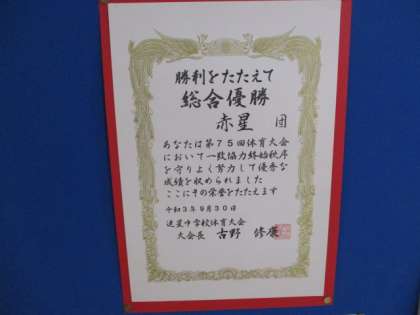 勝利をたたえて
総合優勝
赤星 団
あなたは第75回体育大会
において一致協力終始秩序
を守りよく努力して優秀な
成績を収められました
ここにその栄誉をたたえます
令和3年9月30日
中学校体育大会
大会長 吉野 修